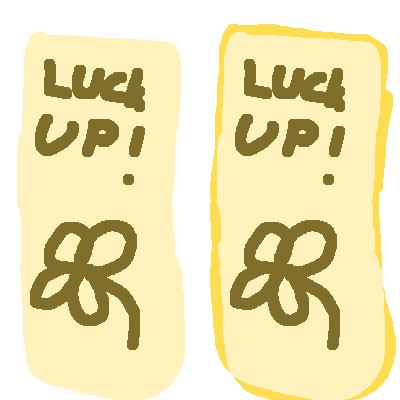 Luck
UP!
Luck
UP!